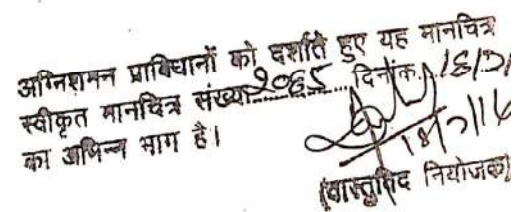 अग्निशमन प्राविधानों को दर्शाते हुए यह मानचित्र
स्वीकृत मानचित्र संख्या २०६५ दिनांक
का अभिन्न भाग है।
(वास्तुविद नियोजक)